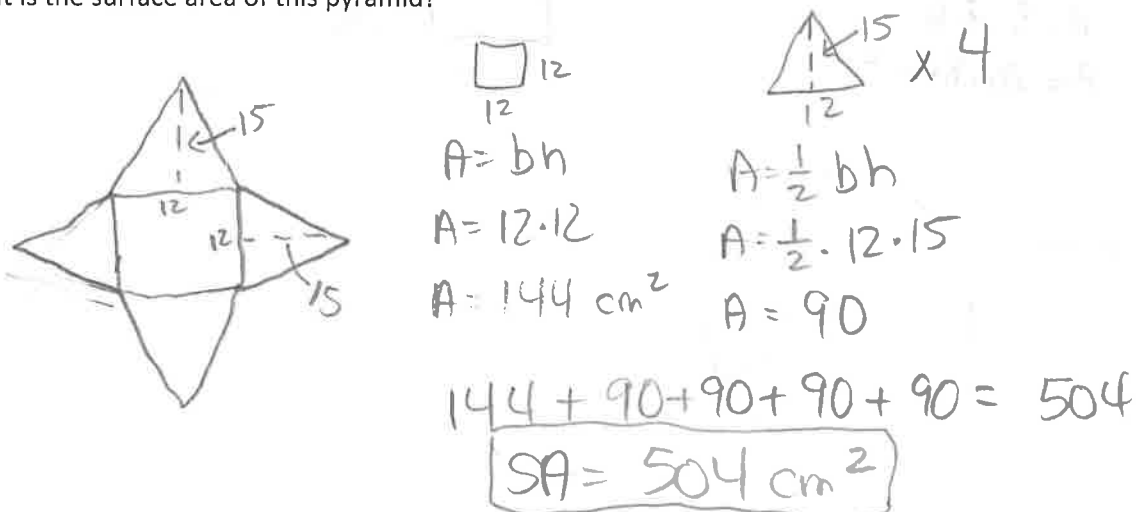 t is the surface area of this pyramid?
15
12
12
15
12
12
A = bh
A = 12·12
A = 144 cm²
15
x 4
12
A = 1/2 bh
A = 1/2 · 12 · 15
A = 90
144 + 90 + 90 + 90 + 90 = 504
SA = 504 cm²